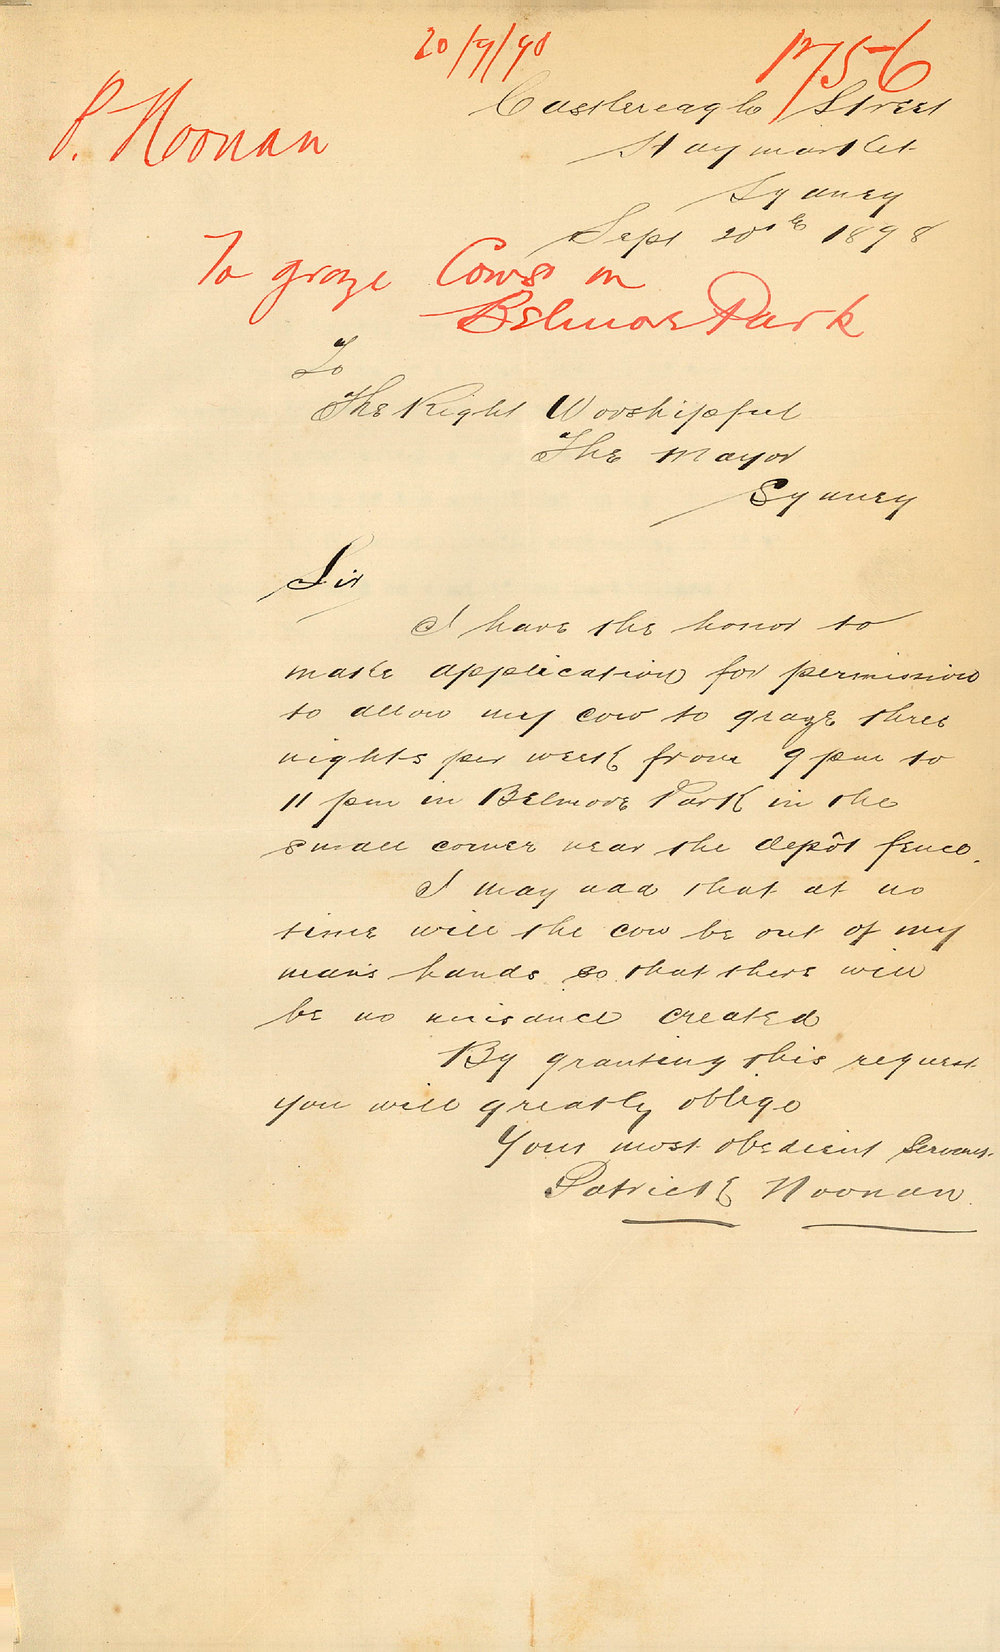 20/9/98
1756
P. Noonan
Castlereagh Street
Haymarket
Sydney
Sept 20th 1898
To graze Cows in
Belmore Park
To
The Right Worshipful
The Mayor
Sydney
Sir
I have the honor to
make application for permission
to allow my cow to graze three
nights per week from 9 pm to
11 pm in Belmore Park in the
small corner near the depôt fence.
I may add that at no
time will the cow be out of my
man's hands so that there will
be no nuisance created
By granting this request
you will greatly oblige
Your most obedient Servant.
Patrick Noonan.